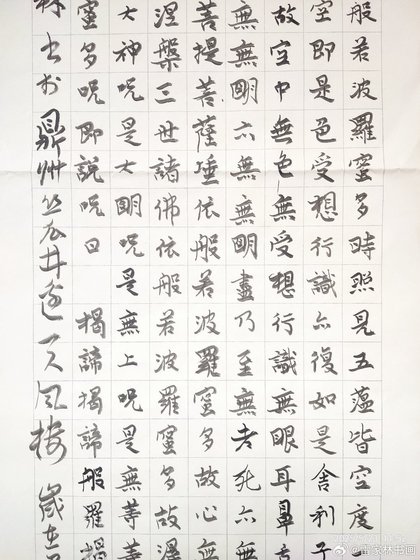 般若波羅蜜多時照見五蕴皆空度
空即是色受想行識亦復如是舍利子
故空中無色無受想行識無眼耳鼻
無無明亦無無明盡乃至無老死亦無
菩提菩薩埵依般若波羅蜜多故心無
涅槃三世諸佛依般若波羅蜜多故
大神咒是大明咒是無上咒是無等
蜜多咒即說咒曰 揭諦揭諦般羅揭
林書於鼎州井邊天風樓 歲在
2025/5/21 11:52
@雷家林书画